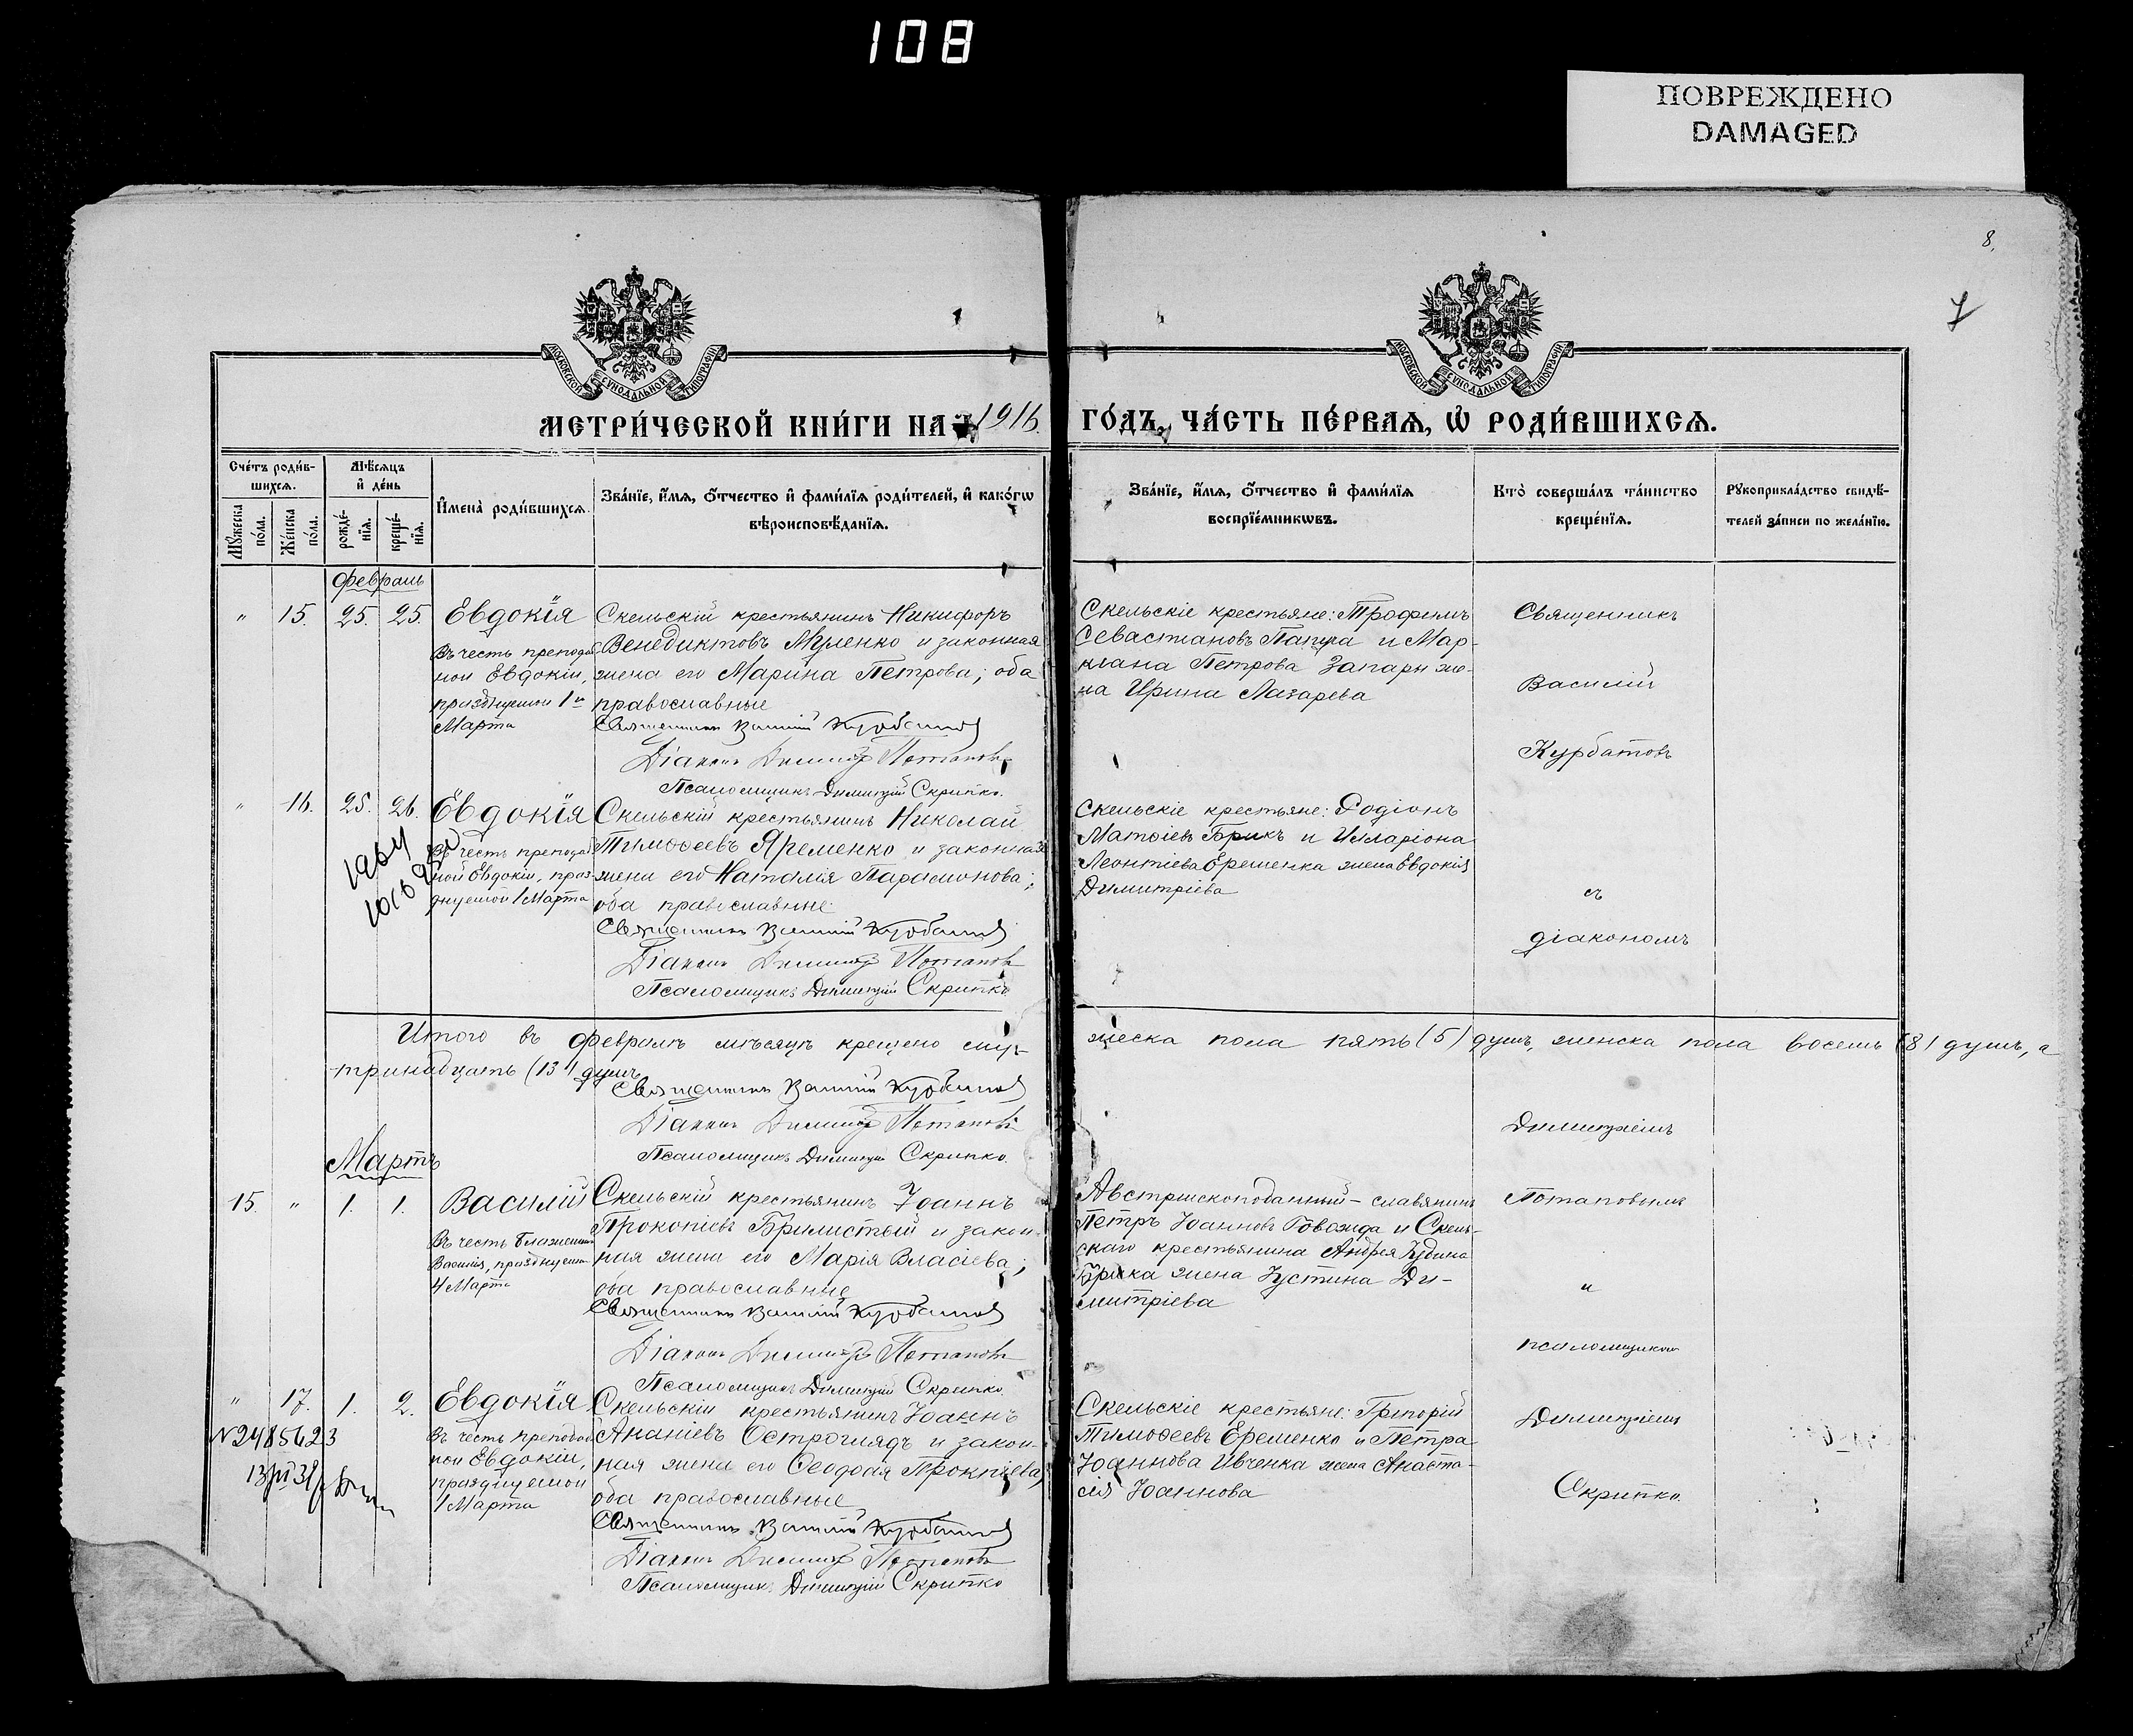 108
ПОВРЕЖДЕНО
DAMAGED
8.
7
МОСКОВСКОЙ СѴНОДАЛЬНОЙ ТИПОГРАФІИ
МОСКОВСКОЙ СѴНОДАЛЬНОЙ ТИПОГРАФІИ
МЕТРИ́ЧЕСКОЙ КНИ́ГИ НА 1916. ГО́ДЪ, ЧА́СТЬ ПЕ́РВАѦ, Ѽ РОДИ́ВШИХСѦ.
Сче́тъ роди́в-
шихсѧ.
Мꙋ́жеска по́ла.
Же́нска по́ла.
Мѣ́сѧцъ
и҆ де́нь
рожде́-
нїѧ.
креще́-
нїѧ.
И҆мена̀ роди́вшихсѧ.
Зва́нїе, и҆́мѧ, ѻ҆́тчество и҆ фами́лїѧ роди́телей, и҆ како́гѡ
вѣроисповѣ́данїѧ.
Зва́нїе, и҆́мѧ, ѻ҆́тчество и҆ фами́лїѧ
воспрїе́мникѡвъ.
Кто̀ соверша́лъ та́инство
креще́нїѧ.
Рꙋкоприкла́дство свидѣ́-
телей за́писи по жела́нїю.
Февраль
" 15. 25. 25. Евдокія
Въ честь преподоб
ной Евдокіи,
празднуемой 1го
Марта
Скельскій крестьянинъ Никифоръ
Венедиктовъ Муленко и законная
жена его Марина Петрова; оба
православные
Священникъ Василій Курбатовъ
Діаконъ Димитр Потаповъ
Псаломщикъ Димитрій Скрипко.
Скельскіе крестьяне: Трофимъ
Севастіановъ Папура и Мар-
кіана Петрова Запары же-
на Ирина Лазарева
Священникъ
Василій
Курбатовъ
" 16. 25. 26. Евдокія
Въ честь преподоб
ной Евдокіи, праз-
днуемой 1 Марта
Скельскій крестьянинъ Николай
Тимоѳеевъ Яременко и законная
жена его Наталія Парамонова;
оба православные
Священникъ Василій Курбатовъ
Діаконъ Димитр Потаповъ
Псаломщикъ Димитрій Скрипко
Скельскіе крестьяне: Родіонъ
Матѳіевъ Брикъ и Илларіона
Леонтіева Ерешенка жена Евдокія
Димитріева
съ
діакономъ
Итого въ Февралѣ мѣсяцѣ крещено муж-
жеска пола пять (5) душъ, женска пола восемь (8) душъ, а
тринадцать (13) душъ
Священникъ Василій Курбатовъ
Діаконъ Димитр Потаповъ
Псаломщикъ Димитрій Скрипко.
Димитріемъ
Мартъ
15. " 1. 1. Василій
Въ честь блаженнаго
Василія, празднуемаго
4 Марта
Скельскій крестьянинъ Іоаннъ
Прокопіевъ Брилистый и закон-
ная жена его Марія Власіева;
оба православные
Священникъ Василій Курбатовъ
Діаконъ Димитр Потаповъ
Псаломщикъ Димитрій Скрипко.
Австрійскоподанный - славянинъ
Петръ Іоанновъ Говожда и Скель-
скаго крестьянина Андрея Іудина
Брика жена Іустина Ди-
митріева
Потаповымъ
и
псаломщикомъ
" 17. 1. 2. Евдокія
N 2485623
Въ честь преподоб
ной Евдокіи,
празднуемой
1 Марта
Скельскій крестьянинъ Іоаннъ
Ананіевъ Остроглядъ и закон-
ная жена его Ѳеодосія Прокпіева;
оба православные
Священникъ Василій Курбатовъ
Діаконъ Димитр Потаповъ
Псаломщикъ Димитрій Скрипко
Скельскіе крестьяне: Григорій
Тимоѳеевъ Ерешенко и Петра
Іоаннова Ивченка жена Анаста-
сія Іоаннова
Димитріемъ
Скрипко.